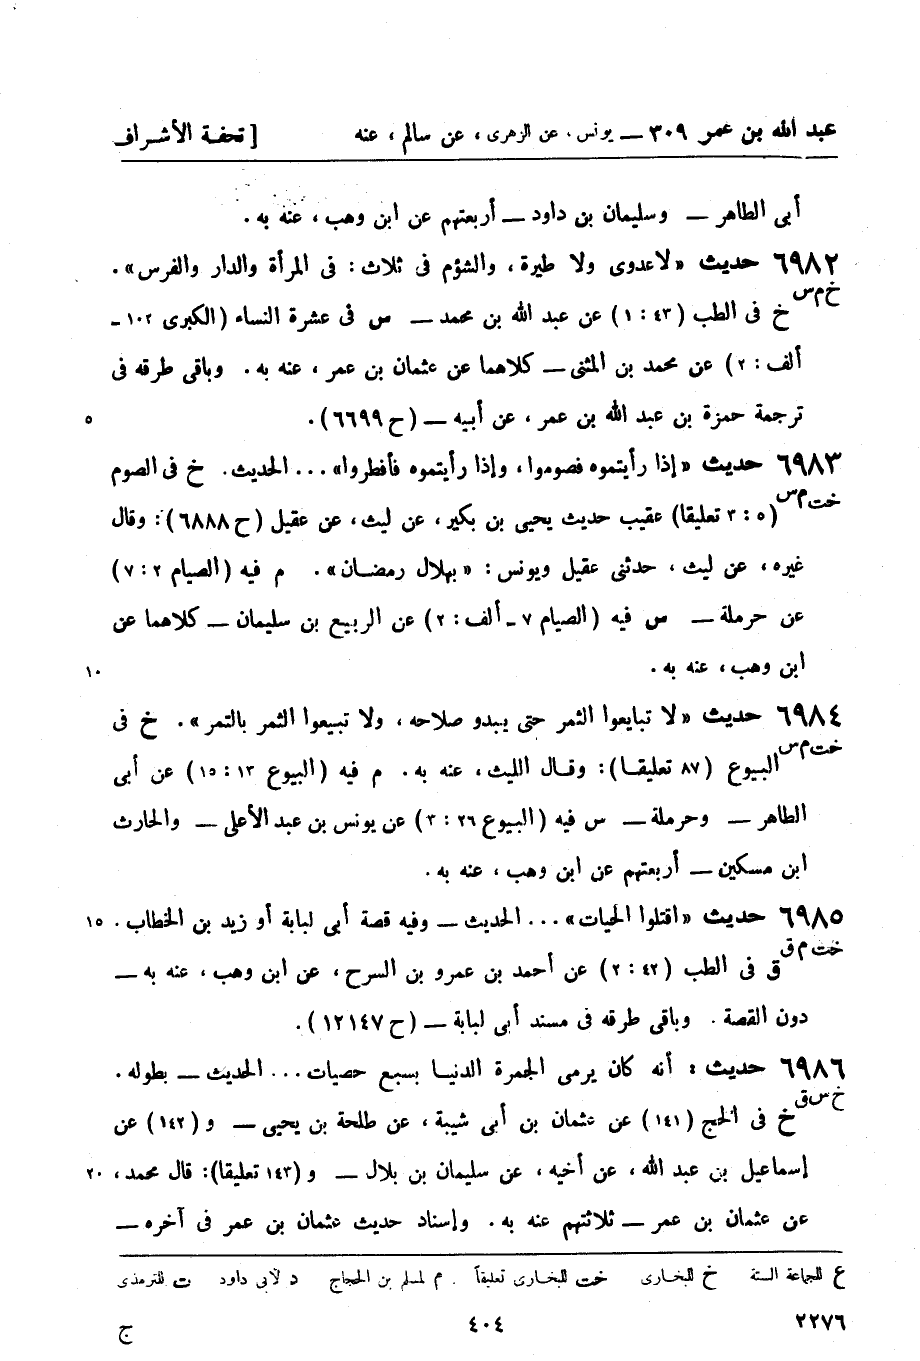 عبد الله بن عمر ٣٠٩ — يونس، عن الزهرى، عن سالم، عنه [ تحفة الأشراف
أبى الطاهر — وسليمان بن داود — أربعتهم عن ابن وهب، عنه به.
٦٩٨٢ حديث «لاعدوى ولا طيرة، والشؤم فى ثلاث: فى المرأة والدار والفرس».
خ م س
خ فى الطب (٤٣ : ١) عن عبد الله بن محمد — س فى عشرة النساء (الكبرى ١٠٢ ـ
ألف: ٢) عن محمد بن المثنى — كلاهما عن عثمان بن عمر، عنه به. وباقى طرقه فى
ترجمة حمزة بن عبد الله بن عمر، عن أبيه — (ح ٦٦٩٩). ٥
٦٩٨٣ حديث «إذا رأيتموه فصوموا، وإذا رأيتموه فأفطروا»... الحديث. خ فى الصوم
خت م س
(٥ : ٣ تعليقا) عقيب حديث يحيى بن بكير، عن ليث، عن عقيل (ح ٦٨٨٨): وقال
غيره، عن ليث، حدثنى عقيل ويونس: «بهلال رمضان». م فيه (الصيام ٢ : ٧)
عن حرملة — س فيه (الصيام ٧ ـ ألف: ٢) عن الربيع بن سليمان — كلاهما عن
ابن وهب، عنه به. ١٠
٦٩٨٤ حديث «لا تبايعوا الثمر حتى يبدو صلاحه، ولا تبيعوا الثمر بالتمر». خ فى
خت م س
البيوع (٨٧ تعليقا): وقال الليث، عنه به. م فيه (البيوع ١٣ : ١٥) عن أبى
الطاهر — وحرملة — س فيه (البيوع ٢٦ : ٣) عن يونس بن عبد الأعلى — والحارث
ابن مسكين — أربعتهم عن ابن وهب، عنه به.
٦٩٨٥ حديث «اقتلوا الحيات»... الحديث — وفيه قصة أبى لبابة أو زيد بن الخطاب. ١٥
خت م ق
ق فى الطب (٤٢ : ٢) عن أحمد بن عمرو بن السرح، عن ابن وهب، عنه به —
دون القصة. وباقى طرقه فى مسند أبى لبابة — (ح ١٢١٤٧).
٦٩٨٦ حديث: أنه كان يرمى الجمرة الدنيا بسبع حصيات... الحديث — بطوله.
خ س ق
خ فى الحج (١٤١) عن عثمان بن أبى شيبة، عن طلحة بن يحيى — و (١٤٢) عن
إسماعيل بن عبد الله، عن أخيه، عن سليمان بن بلال — و (١٤٣ تعليقا): قال محمد، ٢٠
عن عثمان بن عمر — ثلاثتهم عنه به. وإسناد حديث عثمان بن عمر فى آخره —
ع للجماعة الستة خ للبخارى خت للبخارى تعليقاً . م لمسلم بن الحجاج د لأبى داود ت للترمذى
٢٢٧٦ ٤٠٤ ج